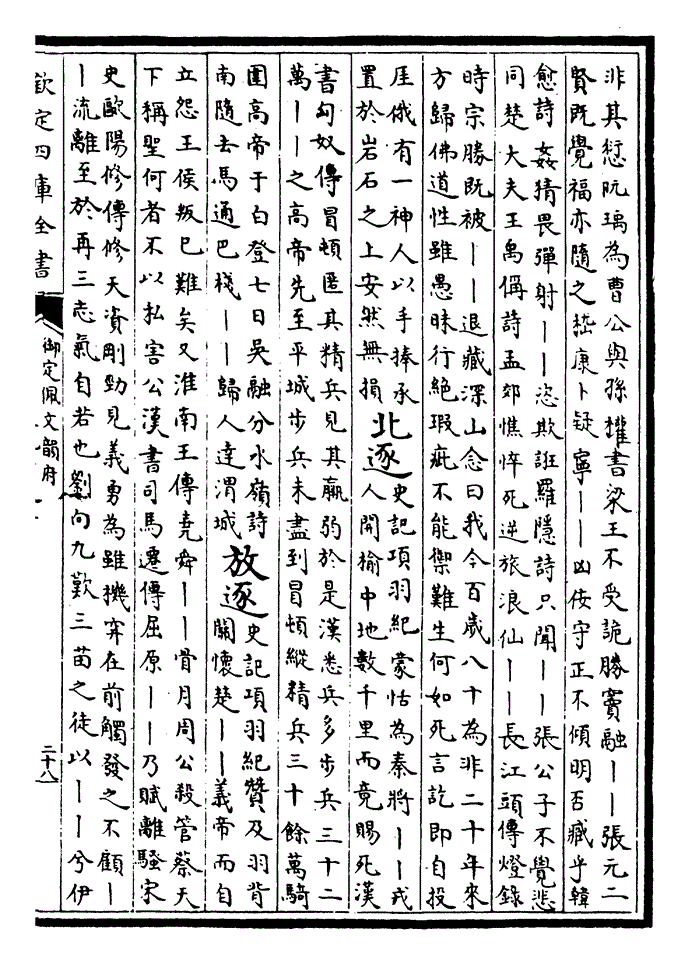 非其愆阮瑀為曹公與孫權書梁王不受詭勝竇融丨丨張元二
賢既覺福亦隨之嵇康卜疑寧丨丨凶佞守正不傾明否臧乎韓
愈詩姦猜畏彈射丨丨恣欺誑羅隱詩只聞丨丨張公子不覺悲
同楚大夫王禹偁詩孟郊憔悴死逆旅浪仙丨丨長江頭傳燈錄
時宗勝既被丨丨退藏深山念曰我今百歳八十為非二十年來
方歸佛道性雖愚昧行絶瑕疵不能禦難生何如死言訖即自投
厓俄有一神人以手捧承
置於岩石之上安然無損
北逐
史記項羽紀蒙恬為秦將丨丨戎
人開榆中地數千里而竟賜死漢
書匈奴傳冒頓匿其精兵見其羸弱於是漢悉兵多步兵三十二
萬丨丨之高帝先至平城步兵未盡到冒頓縱精兵三十餘萬騎
圍高帝于白登七日吳融分水嶺詩
南隨去馬通巴棧丨丨歸人達渭城
放逐
史記項羽紀贊及羽背
關懷楚丨丨義帝而自
立怨王侯叛已難矣又淮南王傳堯舜丨丨骨月周公殺管蔡天
下稱聖何者不以私害公漢書司馬遷傳屈原丨丨乃賦離騷宋
史歐陽修傳修天資剛勁見義勇為雖機穽在前觸發之不顧丨
丨流離至於再三志氣自若也劉向九歎三苗之徒以丨丨兮伊
欽定四庫全書
御定佩文韻府
二十八